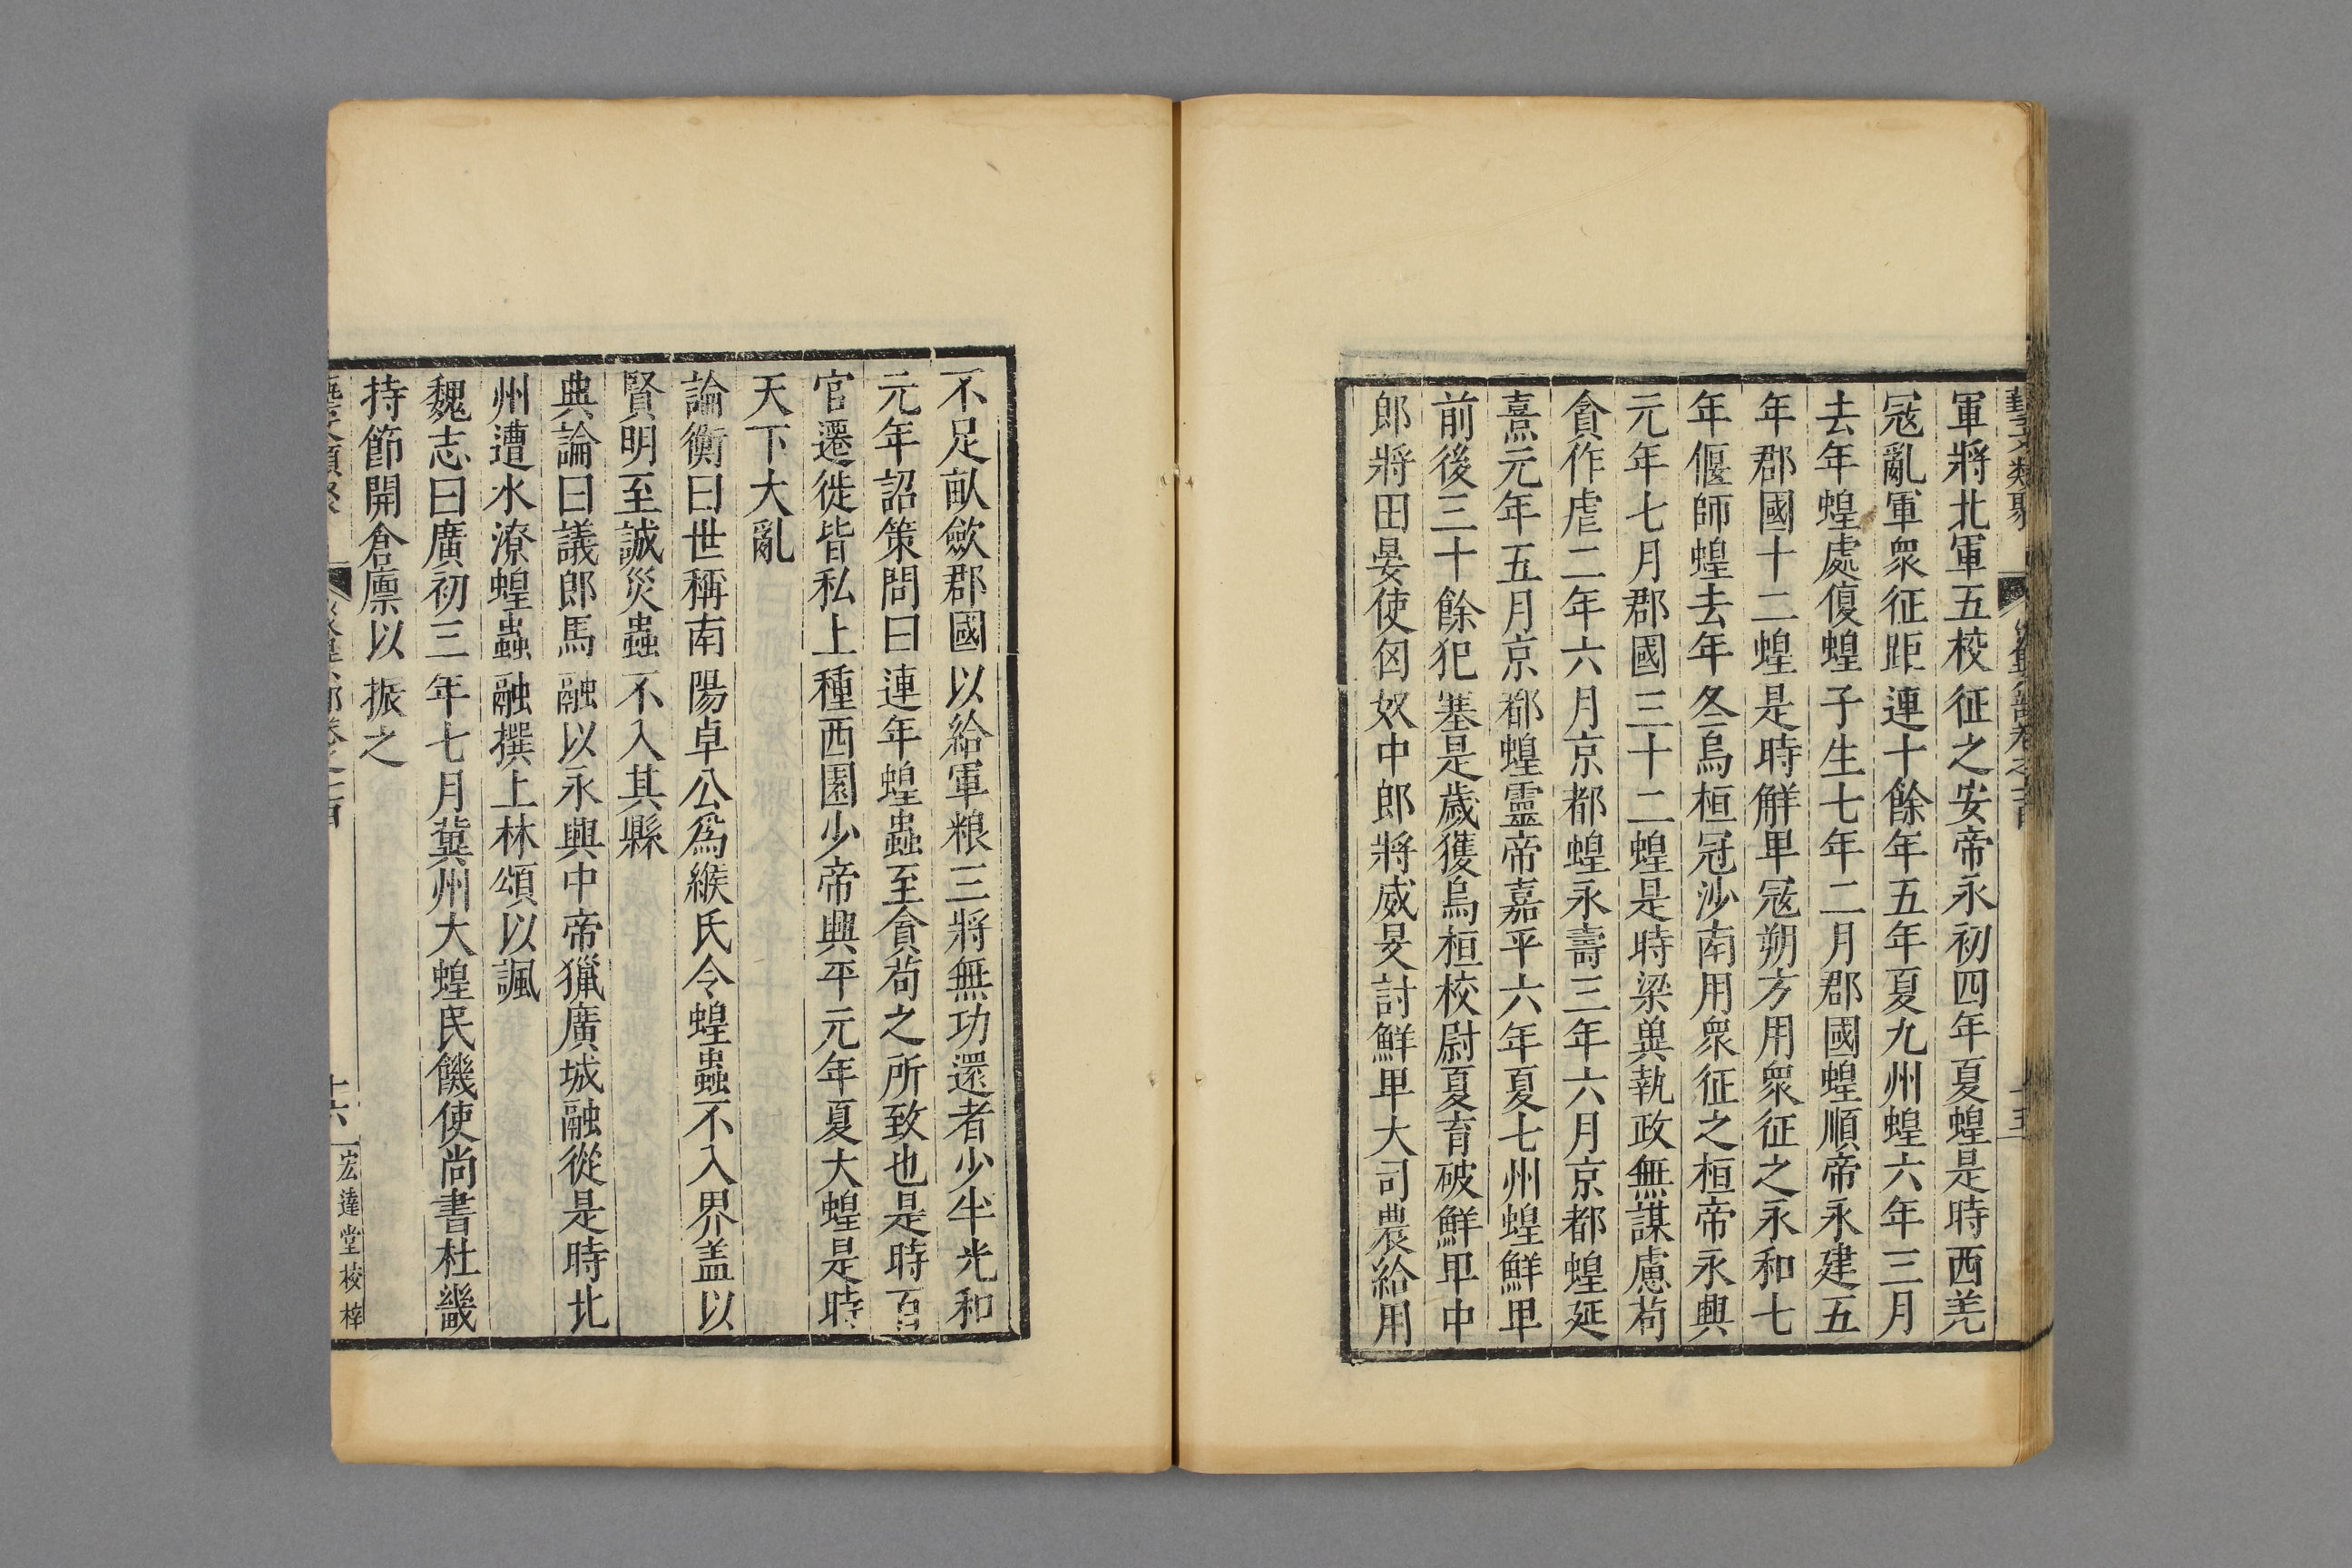 藝文類聚
軍將北軍五校征之安帝永初四年夏蝗是時西羌
冦亂軍衆征距連十餘年五年夏九州蝗六年三月
去年蝗處復蝗子生七年二月郡國蝗順帝永建五
年郡國十二蝗是時鮮卑冦朔方用衆征之永和七
年偃師蝗去年冬烏桓冠沙南用衆征之桓帝永興
元年七月郡國三十二蝗是時梁兾執政無謀慮苟
貪作虐二年六月京都蝗永壽三年六月京都蝗延
熹元年五月京都蝗靈帝嘉平六年夏七州蝗鮮卑
前後三十餘犯塞是歲獲烏桓校尉夏育破鮮卑中
郎將田晏使匈奴中郎將威旻討鮮卑大司農給用
不足㽗歛郡國以給軍粮三將無功還者少半光和
元年詔策問曰連年蝗蟲至貪苟之所致也是時百
官遷徙皆私上種西園少帝興平元年夏大蝗是時
天下大亂
論衡曰世稱南陽卓公爲緱氏令蝗蟲不入界盖以
賢明至誠災蟲不入其縣
典論曰議郎馬融以永興中帝獵廣城融從是時北
州遭水潦蝗蟲融撰上林頌以諷
魏志曰廣初三年七月冀州大蝗民饑使尚書杜畿
持節開倉廪以振之
十六
宏達堂校梓